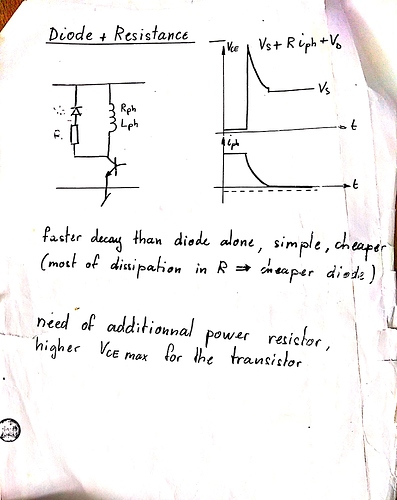 Diode + Resistance
VCE
Vs + R iph + VD
Vs
t
Rph
Lph
R
iph
t
faster decay than diode alone, simple, cheaper
(most of dissipation in R ⇒ cheaper diode)
need of additionnal power resistor,
higher VCE max for the transistor